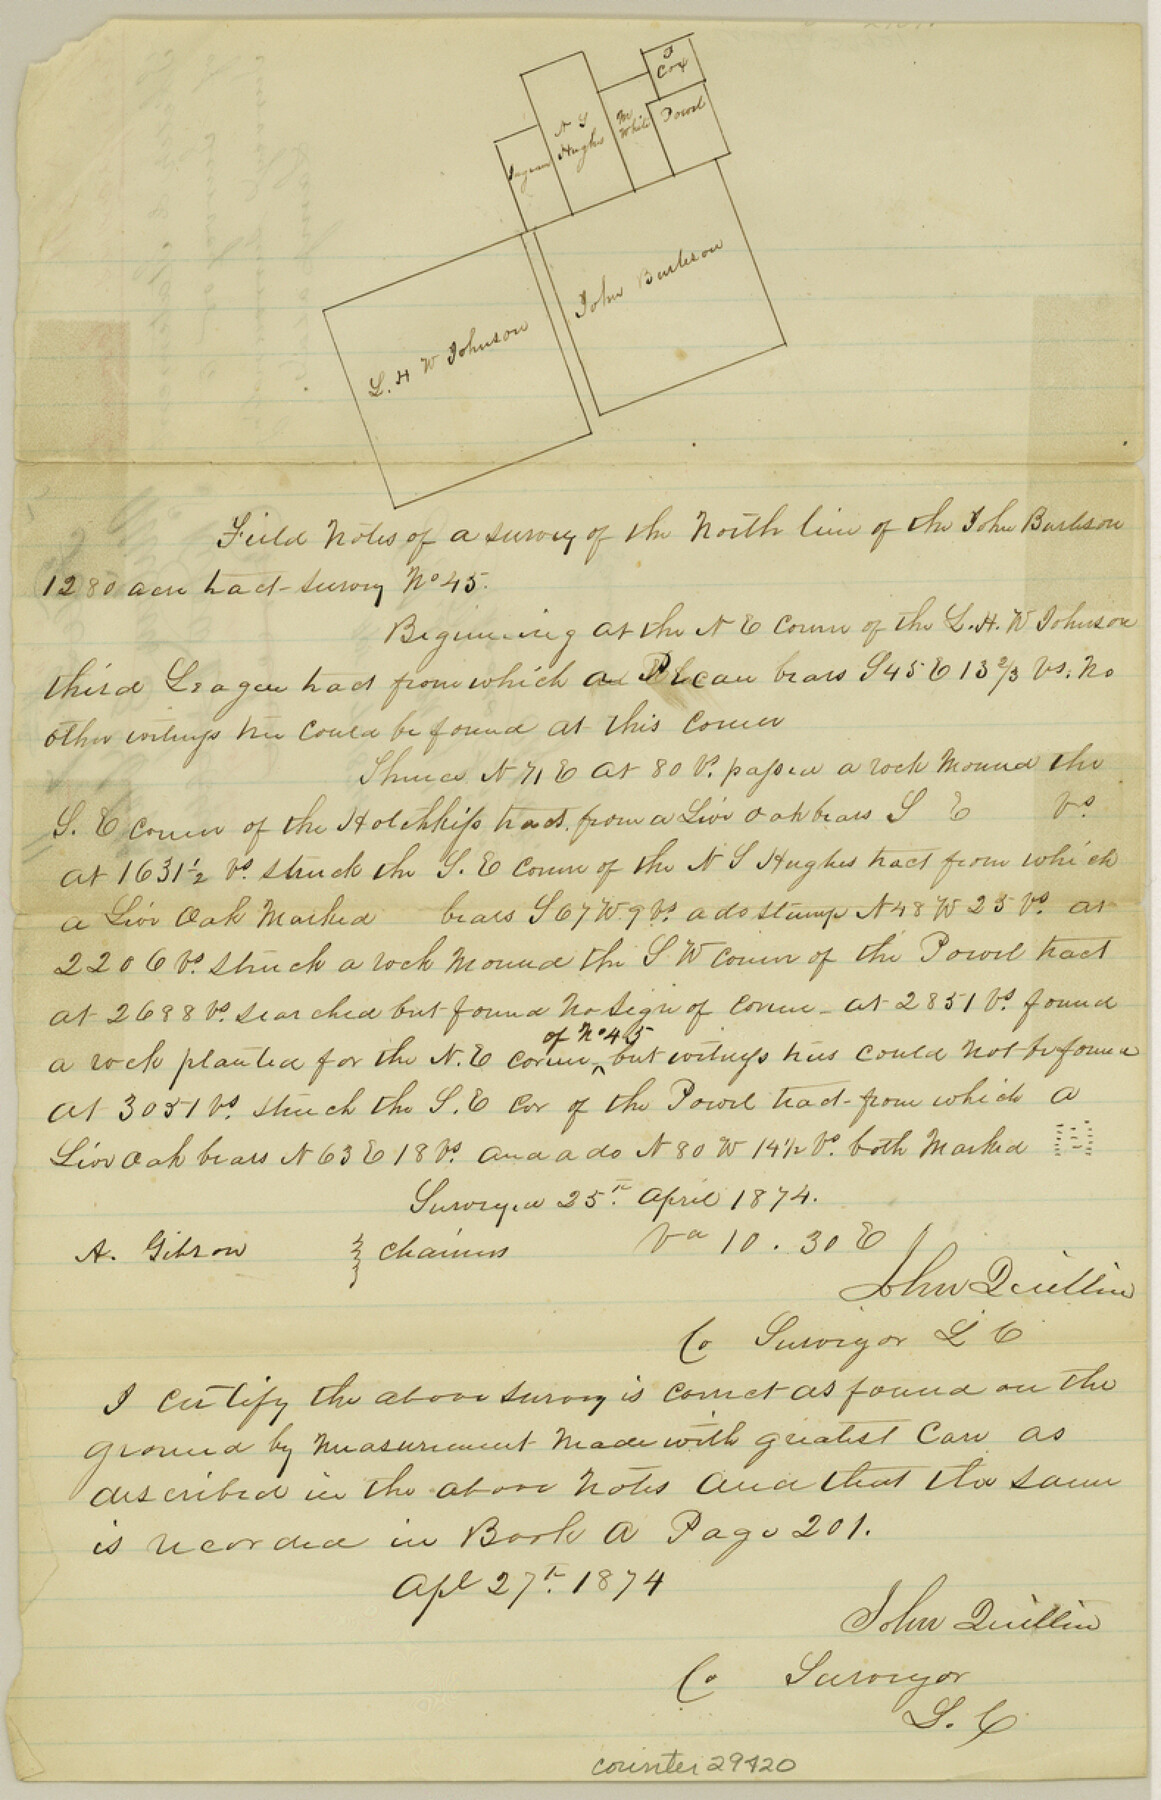 J
Cox
N S
Hughs
M
White
Powel
John Burleson
L. H W Johnson
Field Notes of a survey of the North line of the John Burleson
1280 acre tract - survey No 45.
Beginning at the N E corner of the L. H. W Johnson
third League tract from which a Pecan bears S 45 E 13 2/3 vs. No
other witness tree could be found at this corner
Thence N 71 E at 80 vs. passed a rock mound the
S. E corner of the Hotchkiss tract. from a Live Oak bears S E vs
at 1631 1/2 vs. struck the S. E corner of the N S Hughes tract from which
a Live Oak Marked bears S 67 W 9 vs. a do stump N 48 W 25 vs. at
2206 vs. struck a rock mound the S W corner of the Powel tract
at 2688 vs. searched but found no sign of corner - at 2851 vs. found
of No 45
a rock planted for the N. E corner ^ but witness trees could not be found
at 3051 vs. struck the S. E cor of the Powel tract - from which a
Live Oak bears N 63 E 18 vs. and a do N 80 W 14 1/2 vs. both Marked
Surveyed 25th April 1874.
A. Gibson chainers Va 10. 30 E
John Quillin
Co Surveyor L C
I certify the above survey is correct as found on the
ground by measurement made with greatest care as
described in the above notes and that the same
is recorded in Book A Page 201.
Apl 27th. 1874
John Quillin
Co Surveyor
L. C
counter 29420